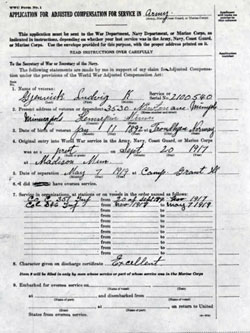 WWC Form No. 1
APPLICATION FOR ADJUSTED COMPENSATION FOR SERVICE IN Army
(Army, Navy, Coast Guard, or Marine Corps)
This application must be sent to the War Department, Navy Department, or Marine Corps, as
indicated in instructions, depending on whether your last service was in the Army, Navy, Coast Guard, or
Marine Corps. Use the envelope provided for this purpose, with the proper address printed on it.
READ INSTRUCTIONS OVER CAREFULLY
To the Secretary of War or Secretary of the Navy.
The following statements are made by me in support of my claim for Adjusted Compensation
under the provisions of the World War Adjusted Compensation Act:
1. Name of veteran:
Ludvig K 2100540
2. Present address of veteran 3530
Minneapolis Hennepin Minn
3. Date of birth of veteran Jan 11 1892 Norway
4. Original entry into World War service in the Army, Navy, Coast Guard, or Marine Corps,
was as a pvt Sept 20 1917
at Madison Minn
5. Date of separation May 7 1919 Camp Grant Ill
6. I did have oversea service.
7. Service in organizations, stations, or on vessels in the order named as follows:
Co E 351 Inf 20 of Sept 1917 Nov 1917
Nov 1917 May 7 1919
8. Character given on discharge certificate Excellent
Item 9 will be filled in only by men whose service or part of whose service was in the Marine Corps
9. Embarked for oversea service on
from and disembarked from
at on on return to United
States from oversea service.